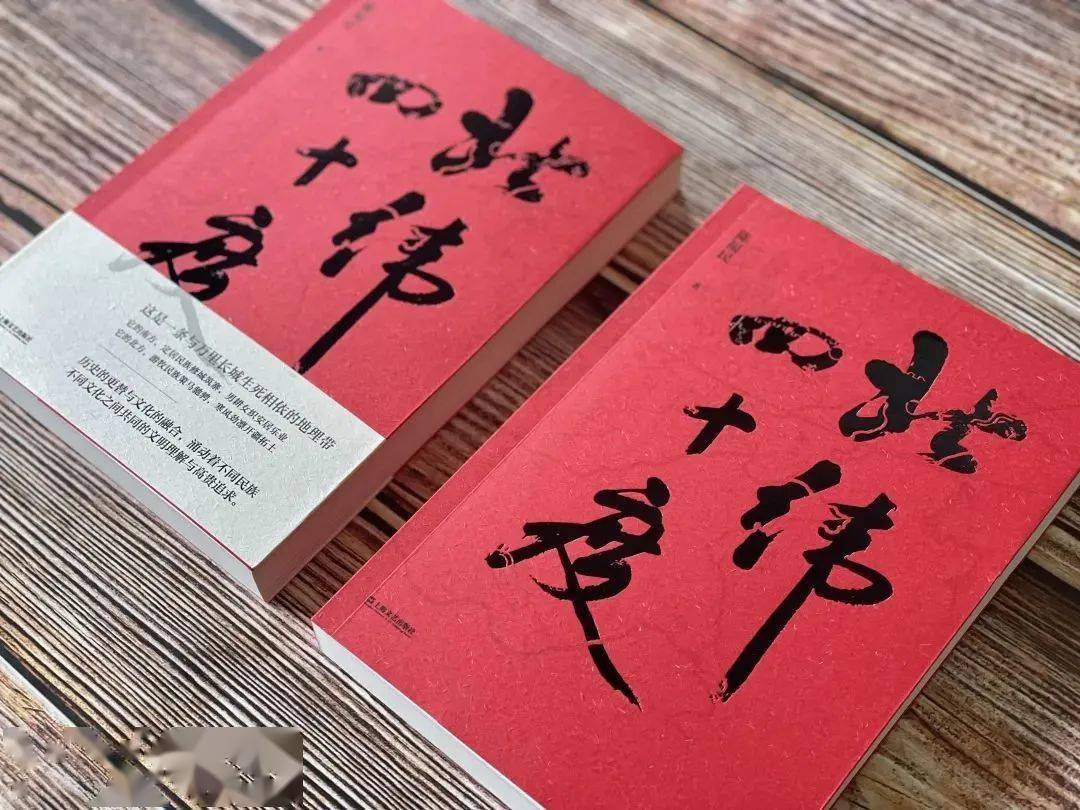 北纬
四十度
这是一条与万里长城生死相依的地理带
它的南方，定居民族修城筑塞，男耕女织安居乐业
它的北方，游牧民族策马驰骋，寒风劲凛开疆拓土
历史的更替与文化的融合，涌动着不同民族
不同文化之间共同的文明理解与高贵追求。
上海文艺出版社
陈福民
著
北纬
四十度
上海文艺出版社